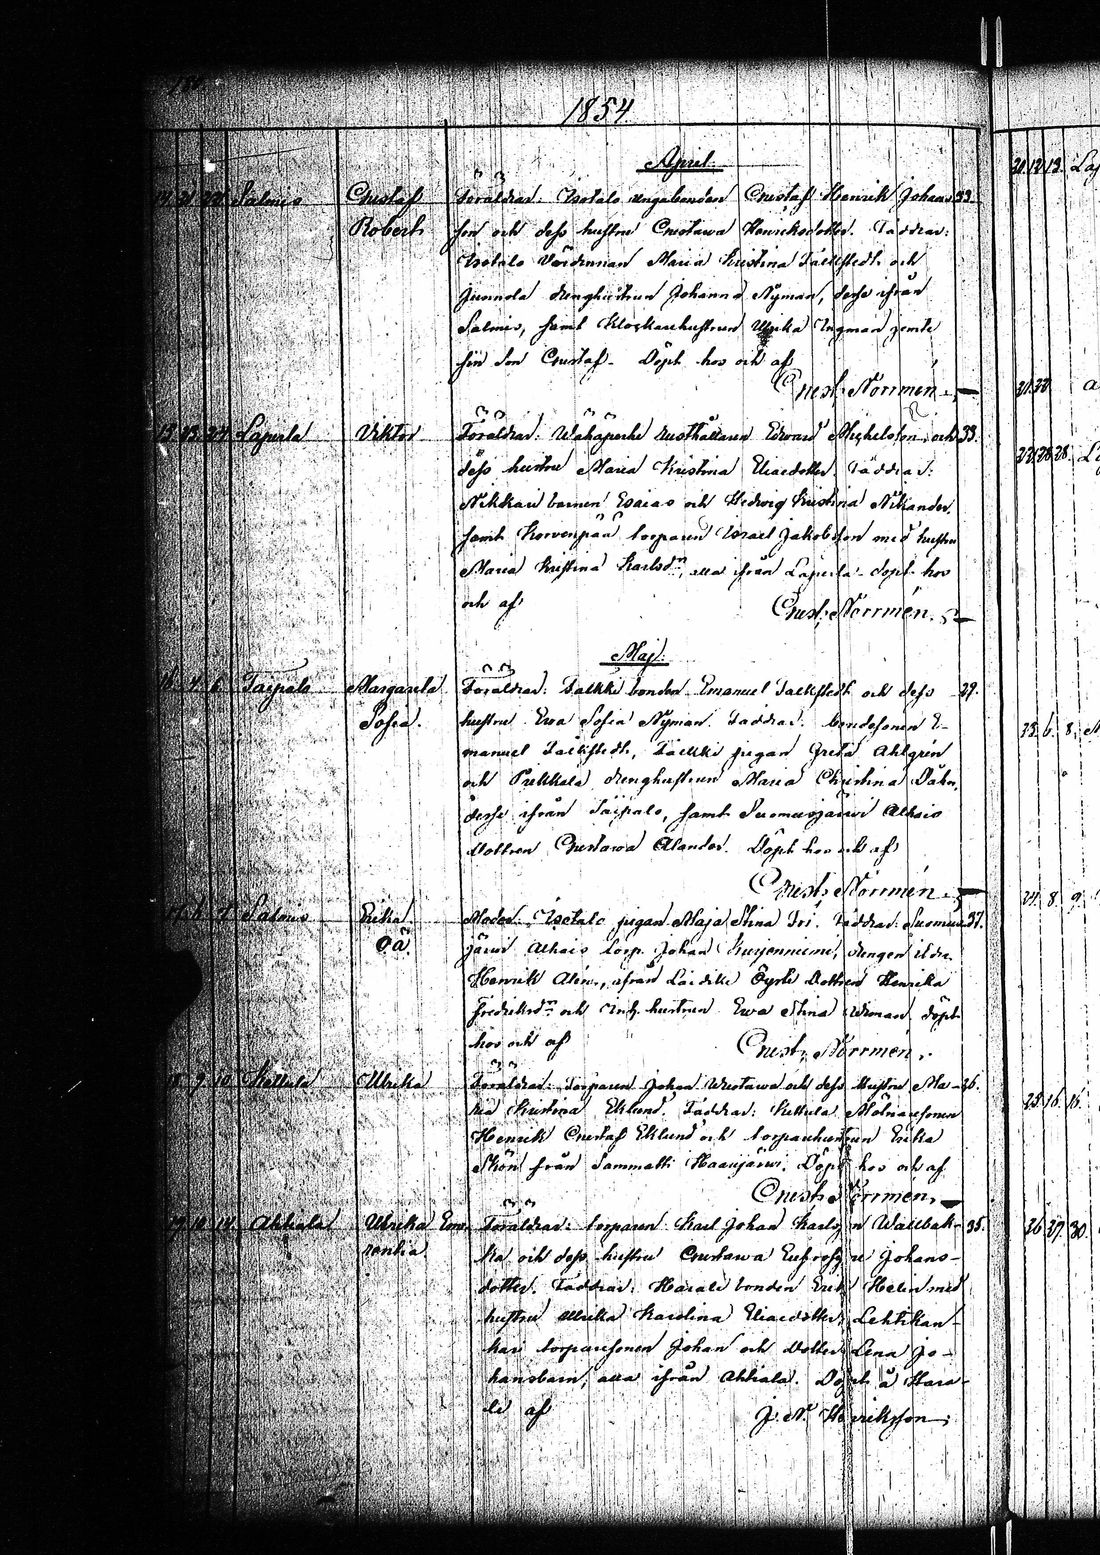 1854
April.
14. 21. 22. Salmis Gustaf Föräldrar: Isotalo ungabonden Gustaf Henrik Johans- 33.
Robert. son och dess hustru Gustawa Henriksdotter. Faddrar:
Isotalo Värdinnan Maria Kristina Fälkstedt och
Junnola drenghustrun Johanna Nyman, desse ifrån
Salmis, samt Klockarehustrun Ulrika Ingman jemte
sin son Gustaf. Döpt hos och af
Gust. Norrmén.
15. 23. 24. Laperla Viktor Föräldrar: Wähäperhe rusthållaren Edvard Michelsson och 33.
dess hustru Maria Kristina Eliaedotter. Faddrar:
Nikkari barnen Esaias och Hedvig Kristina Nikander
samt Korvenpää torparen Israel Jakobsson med hustru
Maria Kristina Karlsdr, alla ifrån Laperla. Döpt hos
och af Gust. Norrmén.
Maj.
16. 4. 6. Taipale Margareta Föräldrar: Fälkki bonden Emanuel Fälkstedt och dess 29.
Sofia. hustru Ewa Sofia Nyman. Faddrar: bondesonen E-
manuel Fälkstedt, Fälkki pigan Greta Ahlgren
och Prekkala drenghustrun Maria Christina Dahn,
desse ifrån Taipale, samt Suomusjärwi Alhais
Dottren Gustawa Alander. Döpt hos och af
Gust. Norrmén.
17. 6. 7. Salmis Erika Moder: Isotalo pigan Maja Stina Fri. Faddrar: Suomus- 37.
OÄ. järwi Alhais torp. Johan Kurjenniemi, drengen
Henrik Alén, ifrån Laidike Öyrti Dottren Henrika
Fredriksdr och Inh. hustrun Ewa Stina Wiman. Döpt
hos och af Gust. Norrmén.
18. 9. 10. Kettula Ulrika Föräldrar: Torparen Johan Wustawa och dess Hustru Ma- 26.
ria Kristina Eklund. Faddrar: Kettula Mölnaresonen
Henrik Gustaf Eklund och torparehustrun Erika
Skön från Sammatti Haarijärwi. Döpt hos och af
Gust. Norrmén.
19. 10. 14. Ahtiala Ulrika Emе- Föräldrar: torparen Karl Johan Karlsson Wallbak- 35.
rentia. ka och dess hustru Gustawa Eufrosyne Johans-
dotter. Faddrar: Harali bonden Erik Helin med
hustru Ulrika Karolina Eliaedotter, Lehtikan-
kari torparesonen Johan och Dotter Lena Jo-
hansbarn, alla ifrån Ahtiala. Döpt å Hara-
li af J. N. Henriksson.